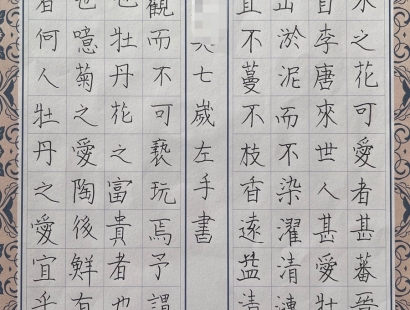 水之花可愛者甚蕃晉
自李唐來世人甚愛牡
出淤泥而不染濯清漣
直不蔓不枝香遠益清
八七歲左手書
觀而不可褻玩焉予謂
也牡丹花之富貴者也
也噫菊之愛陶後鮮有
者何人牡丹之愛宜乎